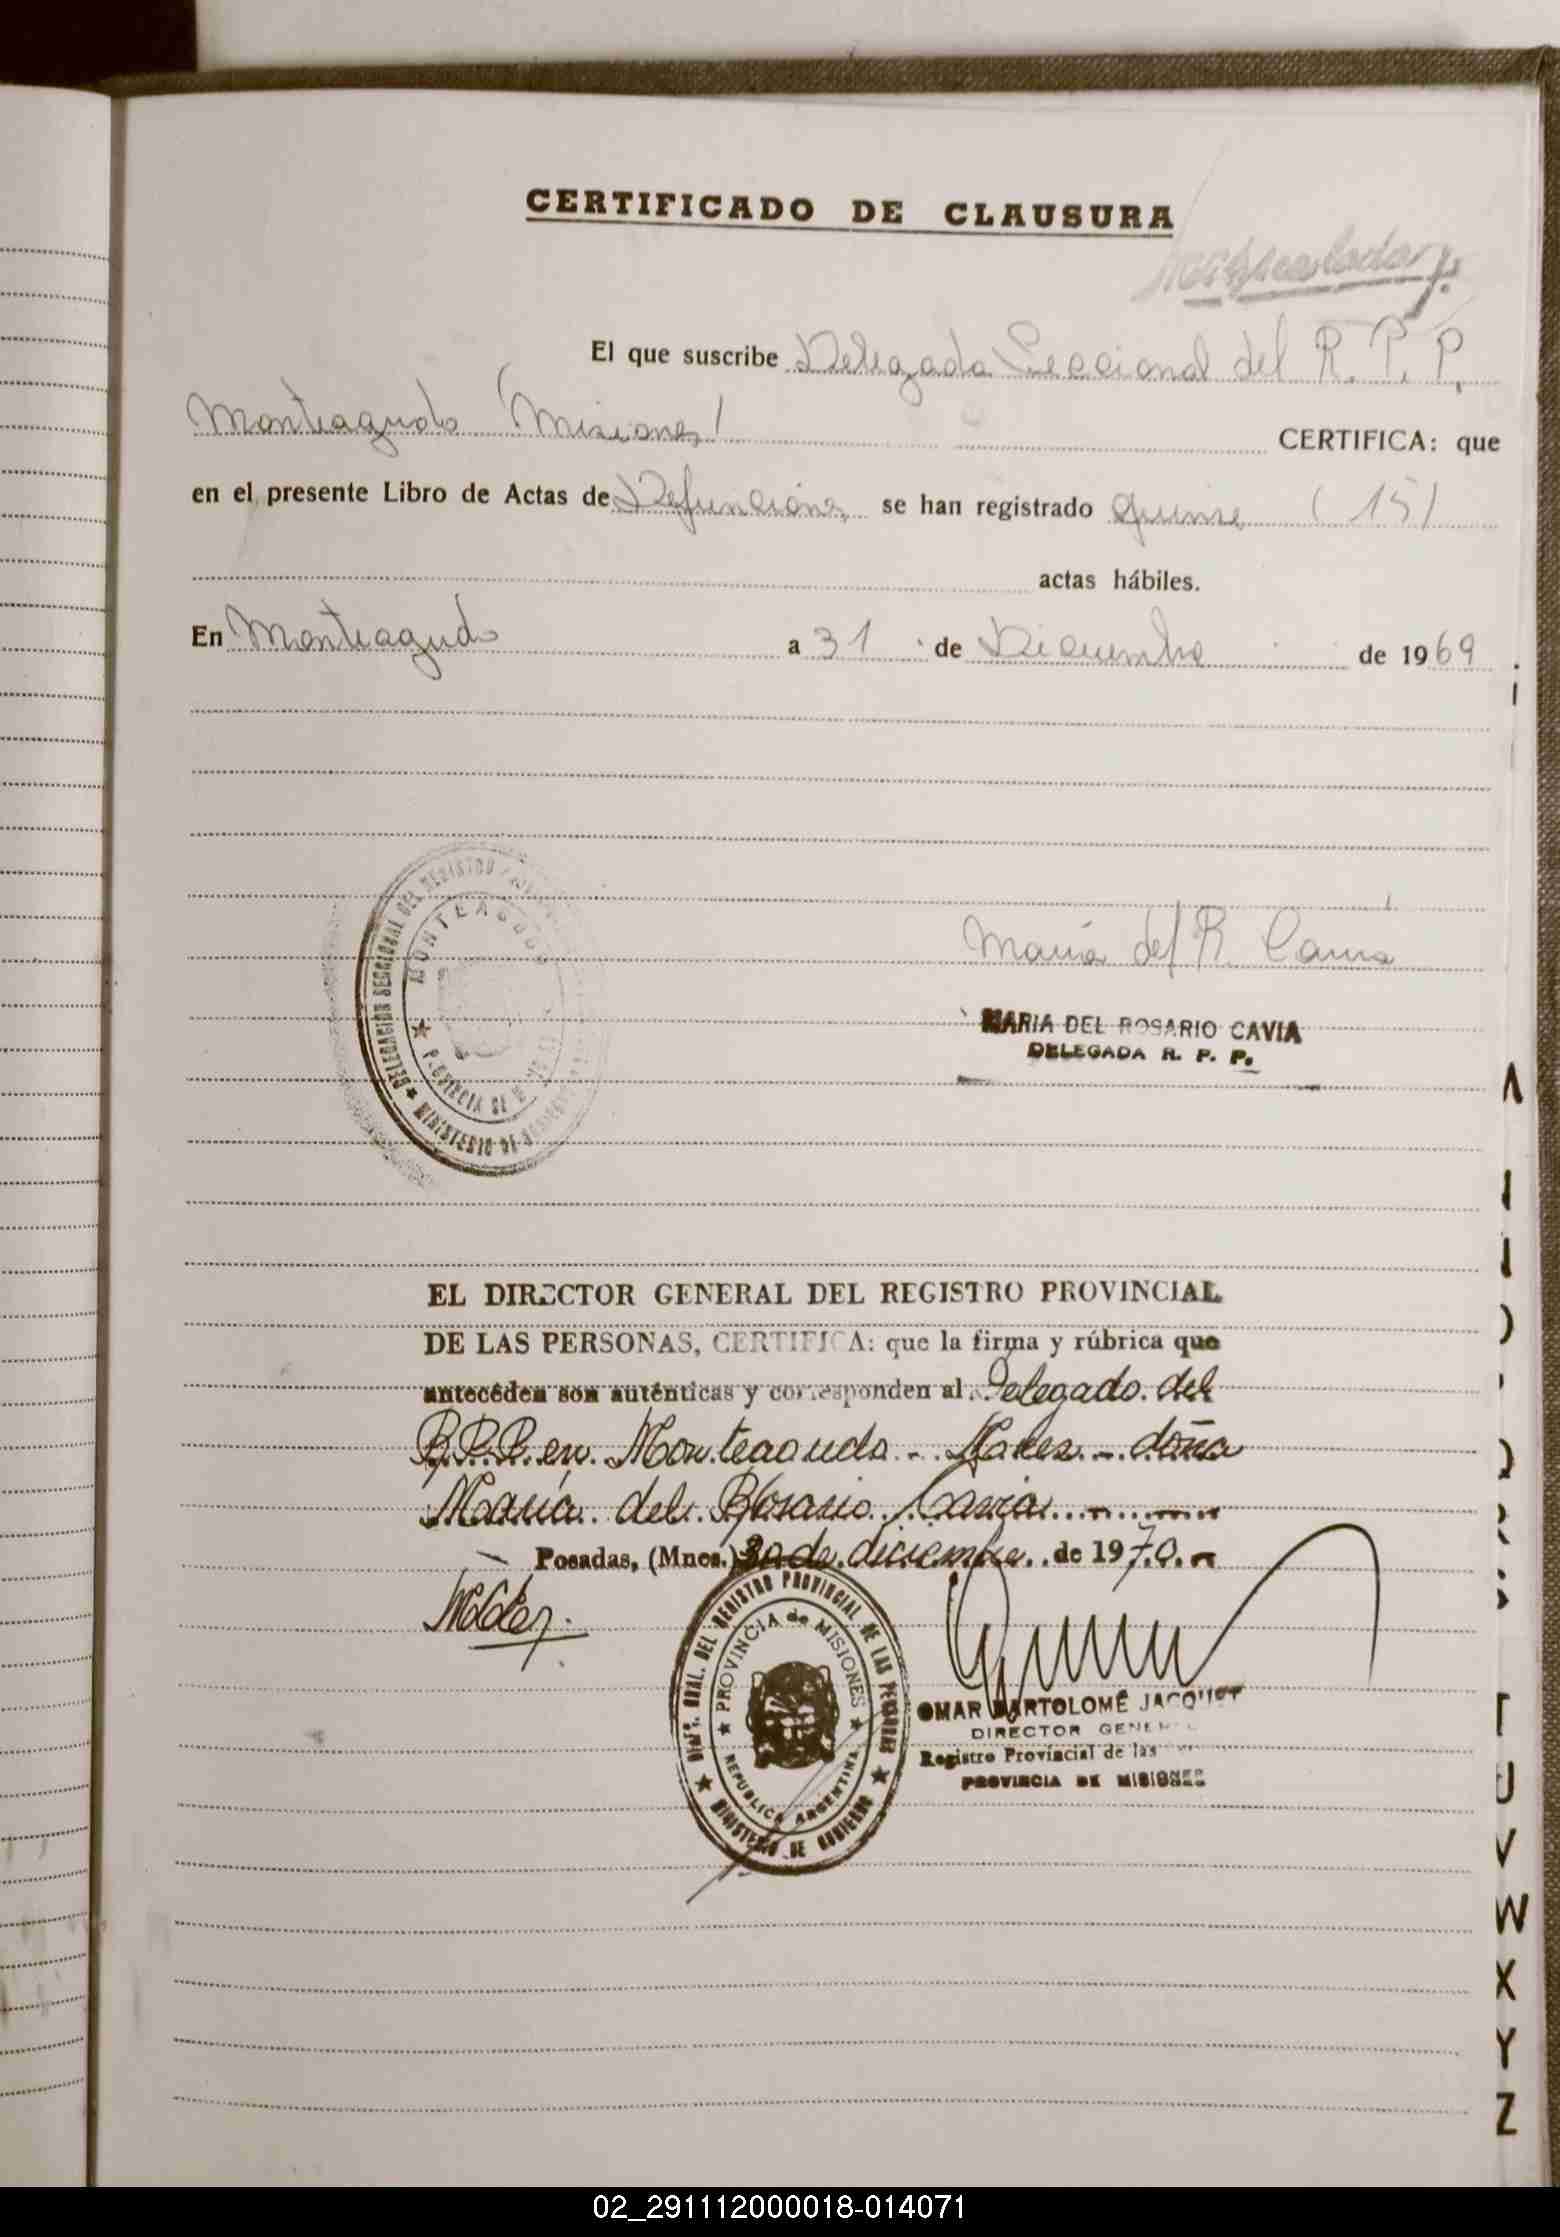 CERTIFICADO DE CLAUSURA
El que suscribe Delegada Seccional del R. P. P.
Monteagudo (Misiones) CERTIFICA: que
en el presente Libro de Actas de Defunciones se han registrado quinse (15)
actas hábiles.
En Monteagudo a 31 de Diciembre de 1969
DELEGACION SECCIONAL DEL REGISTRO
MONTEAGUDO
MINISTERIO DE
María del R. Cavia
MARIA DEL ROSARIO CAVIA
DELEGADA R. P. P.
EL DIRECTOR GENERAL DEL REGISTRO PROVINCIAL
DE LAS PERSONAS, CERTIFICA: que la firma y rúbrica que
anteceden son auténticas y corresponden al Delegado del
R.P.P. en Monteagudo - Mnes - doña
María del Rosario Cavia
Posadas, (Mnes.) 30 de diciembre de 1970
DIREC. GRAL. DEL REGISTRO PROVINCIAL DE LAS PERSONAS
PROVINCIA de MISIONES
REPUBLICA ARGENTINA
MINISTERIO DE GOBIERNO
OMAR BARTOLOMÉ JACQUET
DIRECTOR GENERAL
Registro Provincial de las
PROVINCIA DE MISIONES
U
V
W
X
Y
Z
02_291112000018-014071